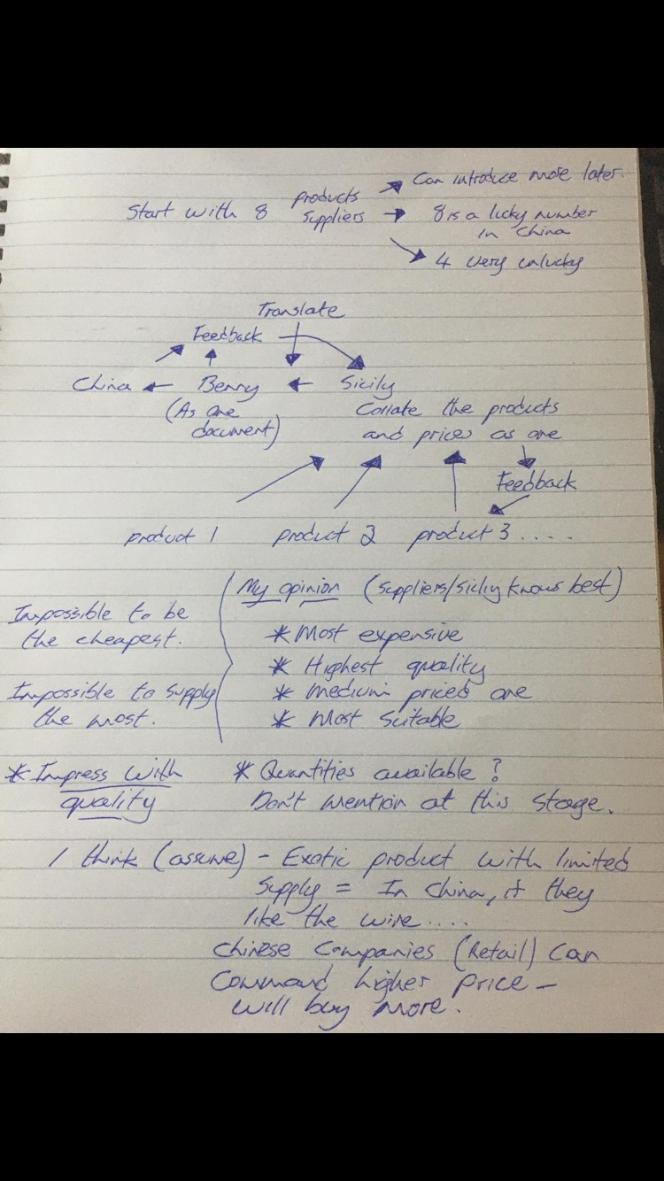 Start with 8 products suppliers
Can introduce more later
8 is a lucky number
in China
4 very unlucky
Translate
Feedback
China
Benny
(As one
document)
Sicily
Collate the products
and prices as one
Feedback
product 1 product 2 product 3.....
Impossible to be
the cheapest.
Impossible to supply
the most.
My opinion (suppliers/Sicily knows best)
* Most expensive
* Highest quality
* Medium priced one
* Most Suitable
* Impress with
quality
* Quantities available?
Don't mention at this stage.
I think (assume) - Exotic product with limited
Supply = In China, if they
like the wine....
Chinese Companies (Retail) Can
Command higher price -
will buy more.